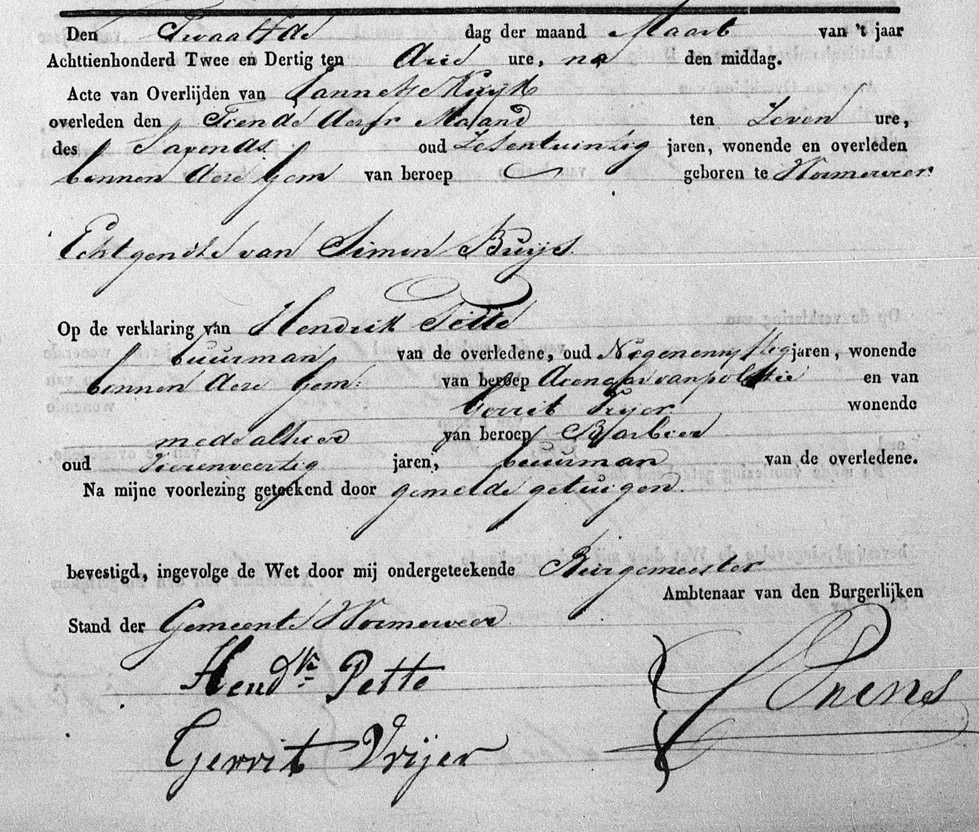 Den Twaalfde dag der maand Maart van 't jaar
Achttienhonderd Twee en Dertig ten drie ure, na den middag.
Acte van Overlijden van Jannetje Kuyk
overleden den Tiende dezer Maand ten Zeven ure,
des savends oud Zesentwintig jaren, wonende en overleden
binnen deze Gem van beroep geboren te Wormerveer
Echtgenote van Simon Buijs
Op de verklaring van Hendrik Pette
buurman van de overledene, oud Negenenvyftig jaren, wonende
binnen deze Gem: van beroep Dienaar van politie en van
Gerrit Vrijer wonende
mede alhier van beroep Barbier
oud jaren, buurman van de overledene.
Na mijne voorlezing geteekend door gemelde getuigen.
bevestigd, ingevolge de Wet door mij ondergeteekende Burgemeester
Ambtenaar van den Burgerlijken
Stand der Gemeente Wormerveer
Hendk Pette
Gerrit Vrijer